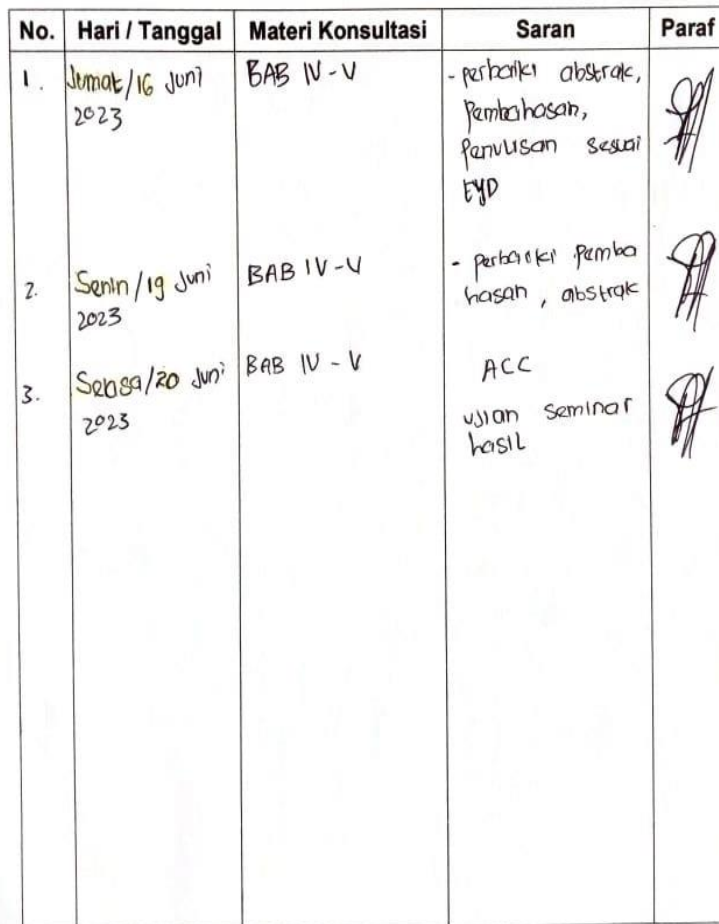 No. Hari / Tanggal Materi Konsultasi Saran Paraf
1. Jumat/16 Juni BAB IV-V - perbaiki abstrak,
2023 Pembahasan,
Penulisan sesuai
EYD
2. Senin/19 Juni BAB IV-V - perbaiki pemba
2023 hasan, abstrak
3. Selasa/20 Juni BAB IV-V ACC
2023 ujian seminar
hasil